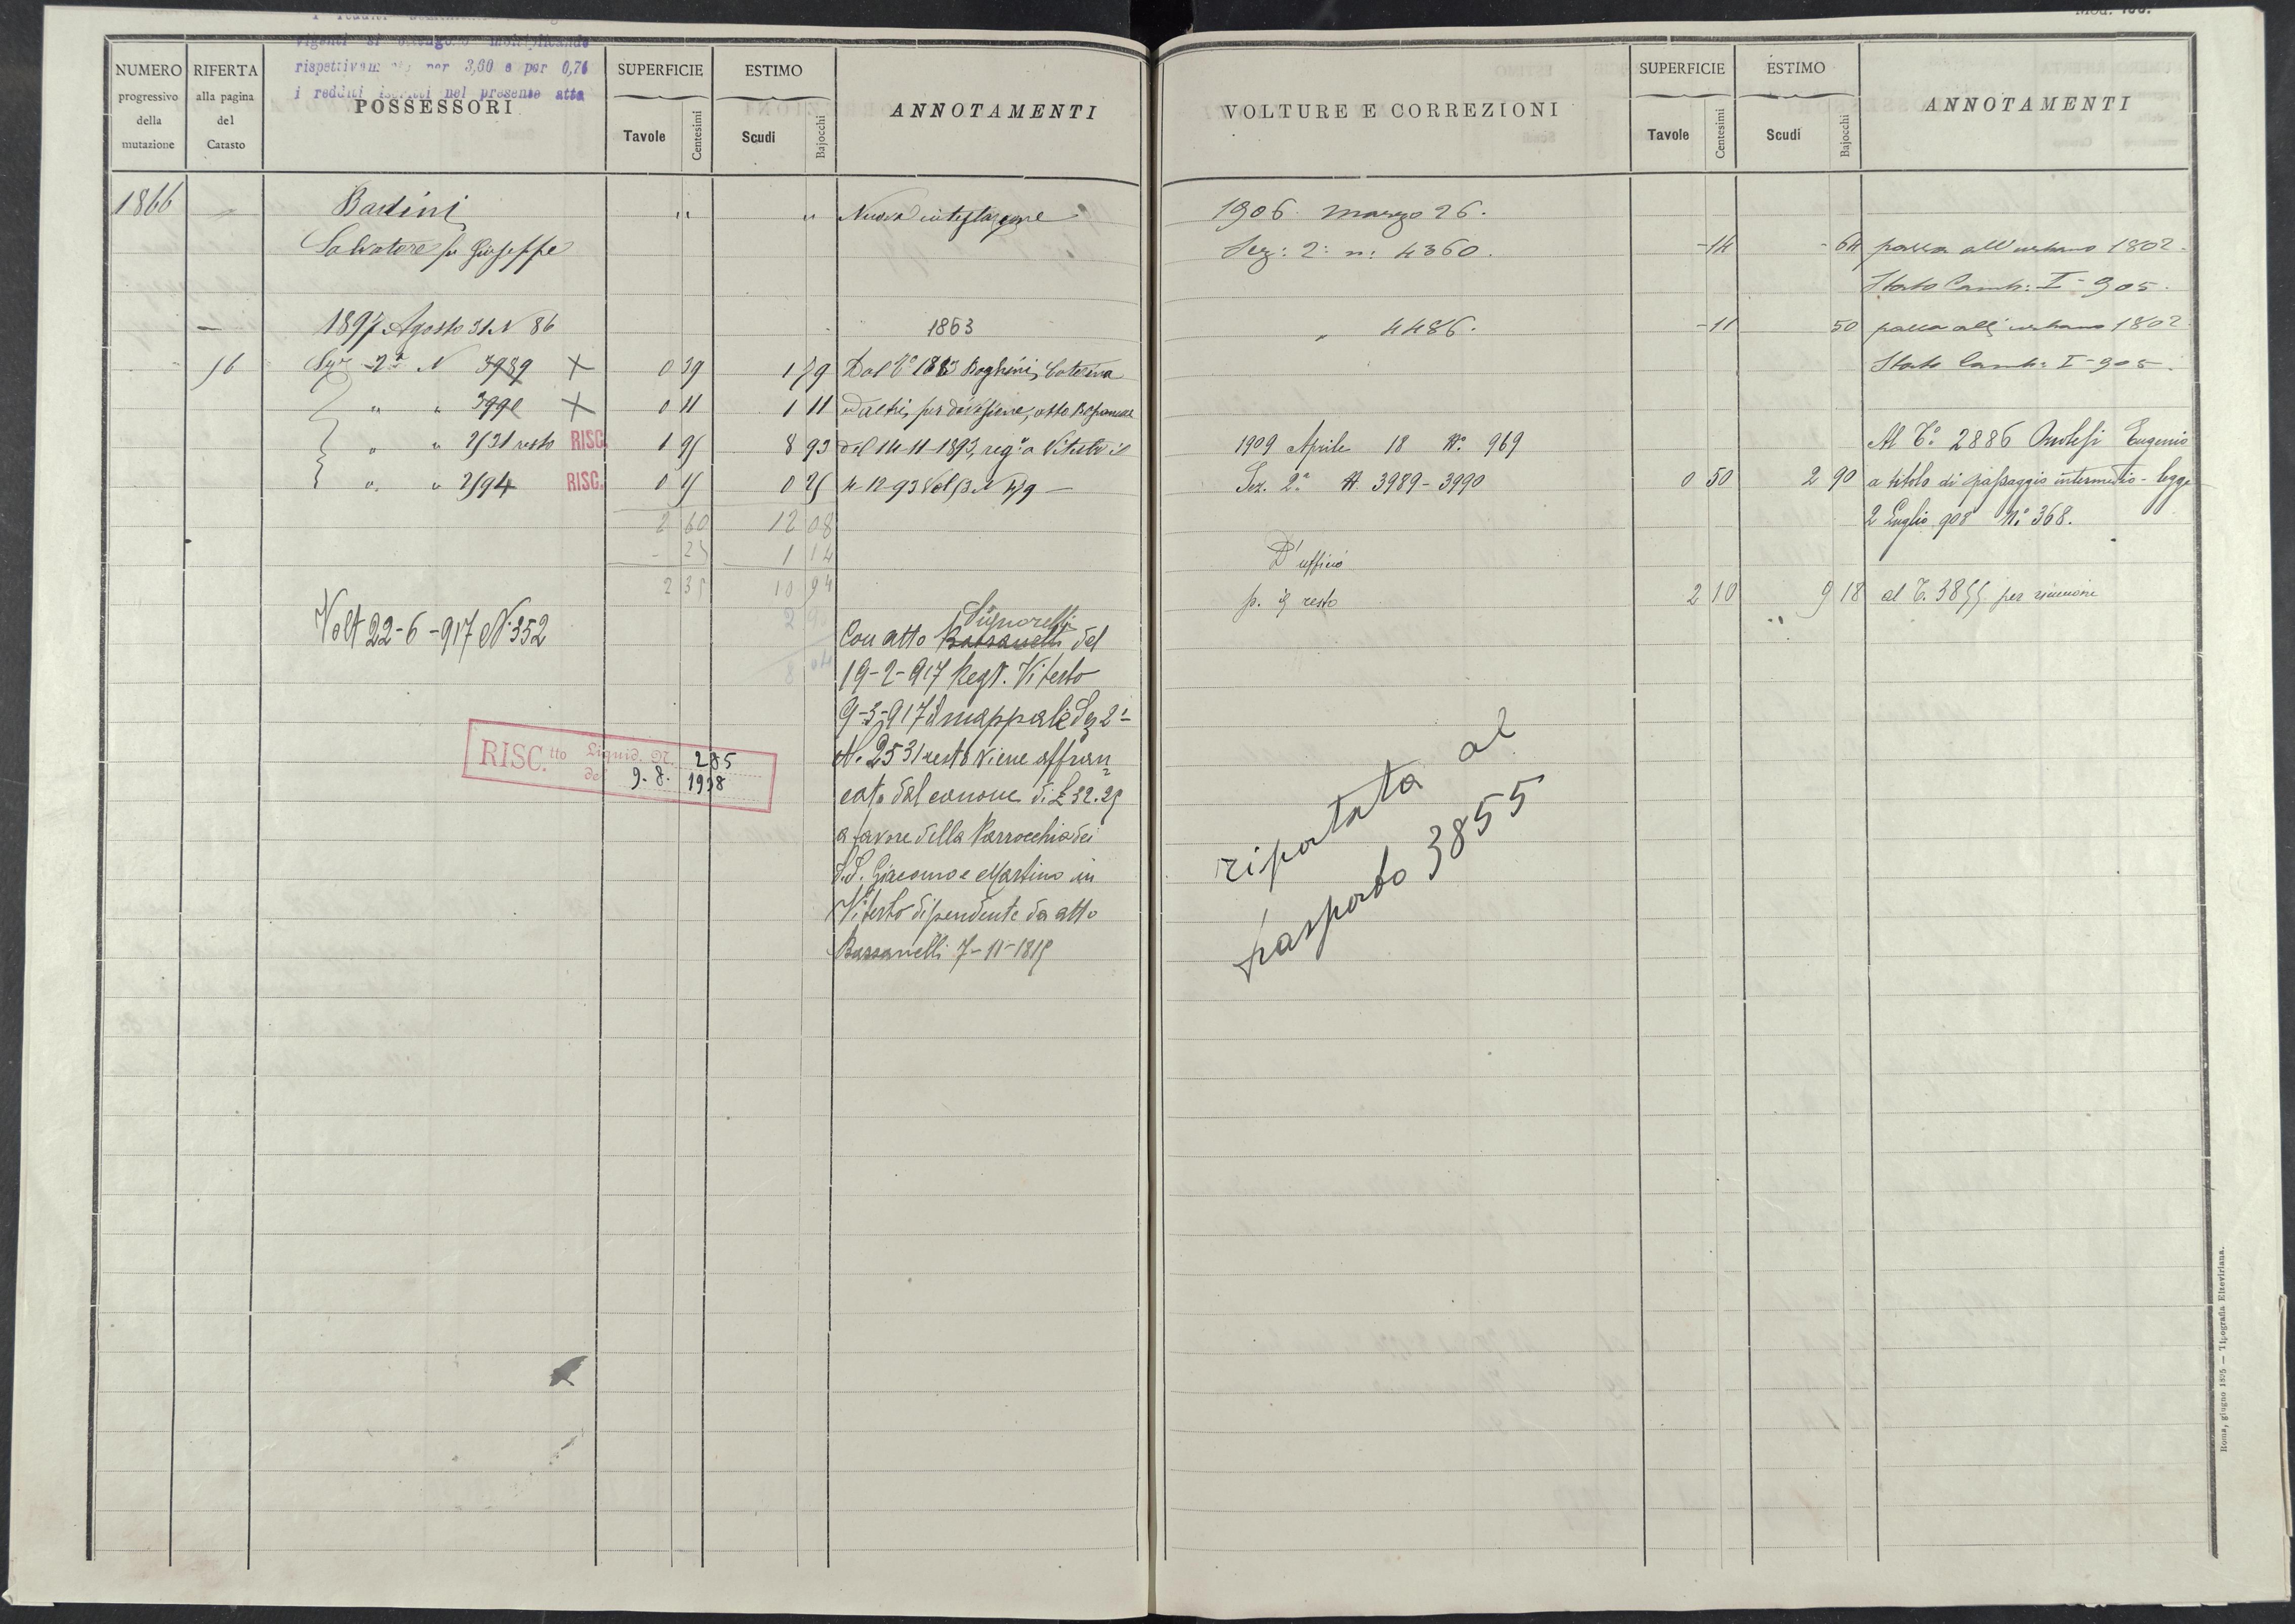 vigenti si ottengono moltiplicando
rispettivamente per 3,60 e per 0,76
i redditi iscritti nel presente atto
NUMERO
progressivo
della
mutazione
RIFERTA
alla pagina
del
Catasto
POSSESSORI
SUPERFICIE
Tavole
Centesimi
ESTIMO
Scudi
Bajocchi
ANNOTAMENTI
1866
Badini " " Nuova intestazione
Salvatore fu Giuseppe
— 1897 Agosto 31 N 86 1863
56 Sez 2a N 3989 X 0 39 1 79 Dal C° 1863 Boghini, Caterina
" " 3990 X 0 11 1 11 ed altri, per divisione, atto
" " 2531 resto RISC. 1 95 8 93 del 14-11-1893, reg° a Viterbo il
" " 2594 RISC. 0 15 0 25 4-12-93 Vol 53 N 579 —
2 60 12 08
- 25 1 14
2 35 10 94
2 90
8 04
Volt 22-6-917 N. 352
Signorelli
Con atto Bassanelli del
19-2-917 Regt. Viterbo
9-3-917 il mappale Sez 2a
N. 2531 resto viene affran
cato dal canone di £ 32.25
a favore della Parrocchia dei
S.S. Giacomo e Martino in
Viterbo dipendente da atto
Bassanelli 7-11-1815
RISC.tto Liquid. N. 285
del 9. 8. 1938
VOLTURE E CORREZIONI
SUPERFICIE
Tavole
Centesimi
ESTIMO
Scudi
Bajocchi
ANNOTAMENTI
1906 marzo 26.
Sez: 2: n: 4360. - 14 - 64 passa all'urbano 1802.
Stato Camb: I - 905.
" 4486. - 11 50 passa all'urbano 1802.
Stato Camb: I - 905.
1909 Aprile 18 N° 969 Al C° 2886 Eugenio
Sez. 2a N 3989-3990 0 50 2 90 a titolo di passaggio intermedio - legge
2 Luglio 908 N° 368.
D'ufficio
p. il resto 2 10 9 18 al C. 3855 per riunione
riportata al
trasporto 3855
Roma, giugno 1895 — Tipografia Elzeviriana.